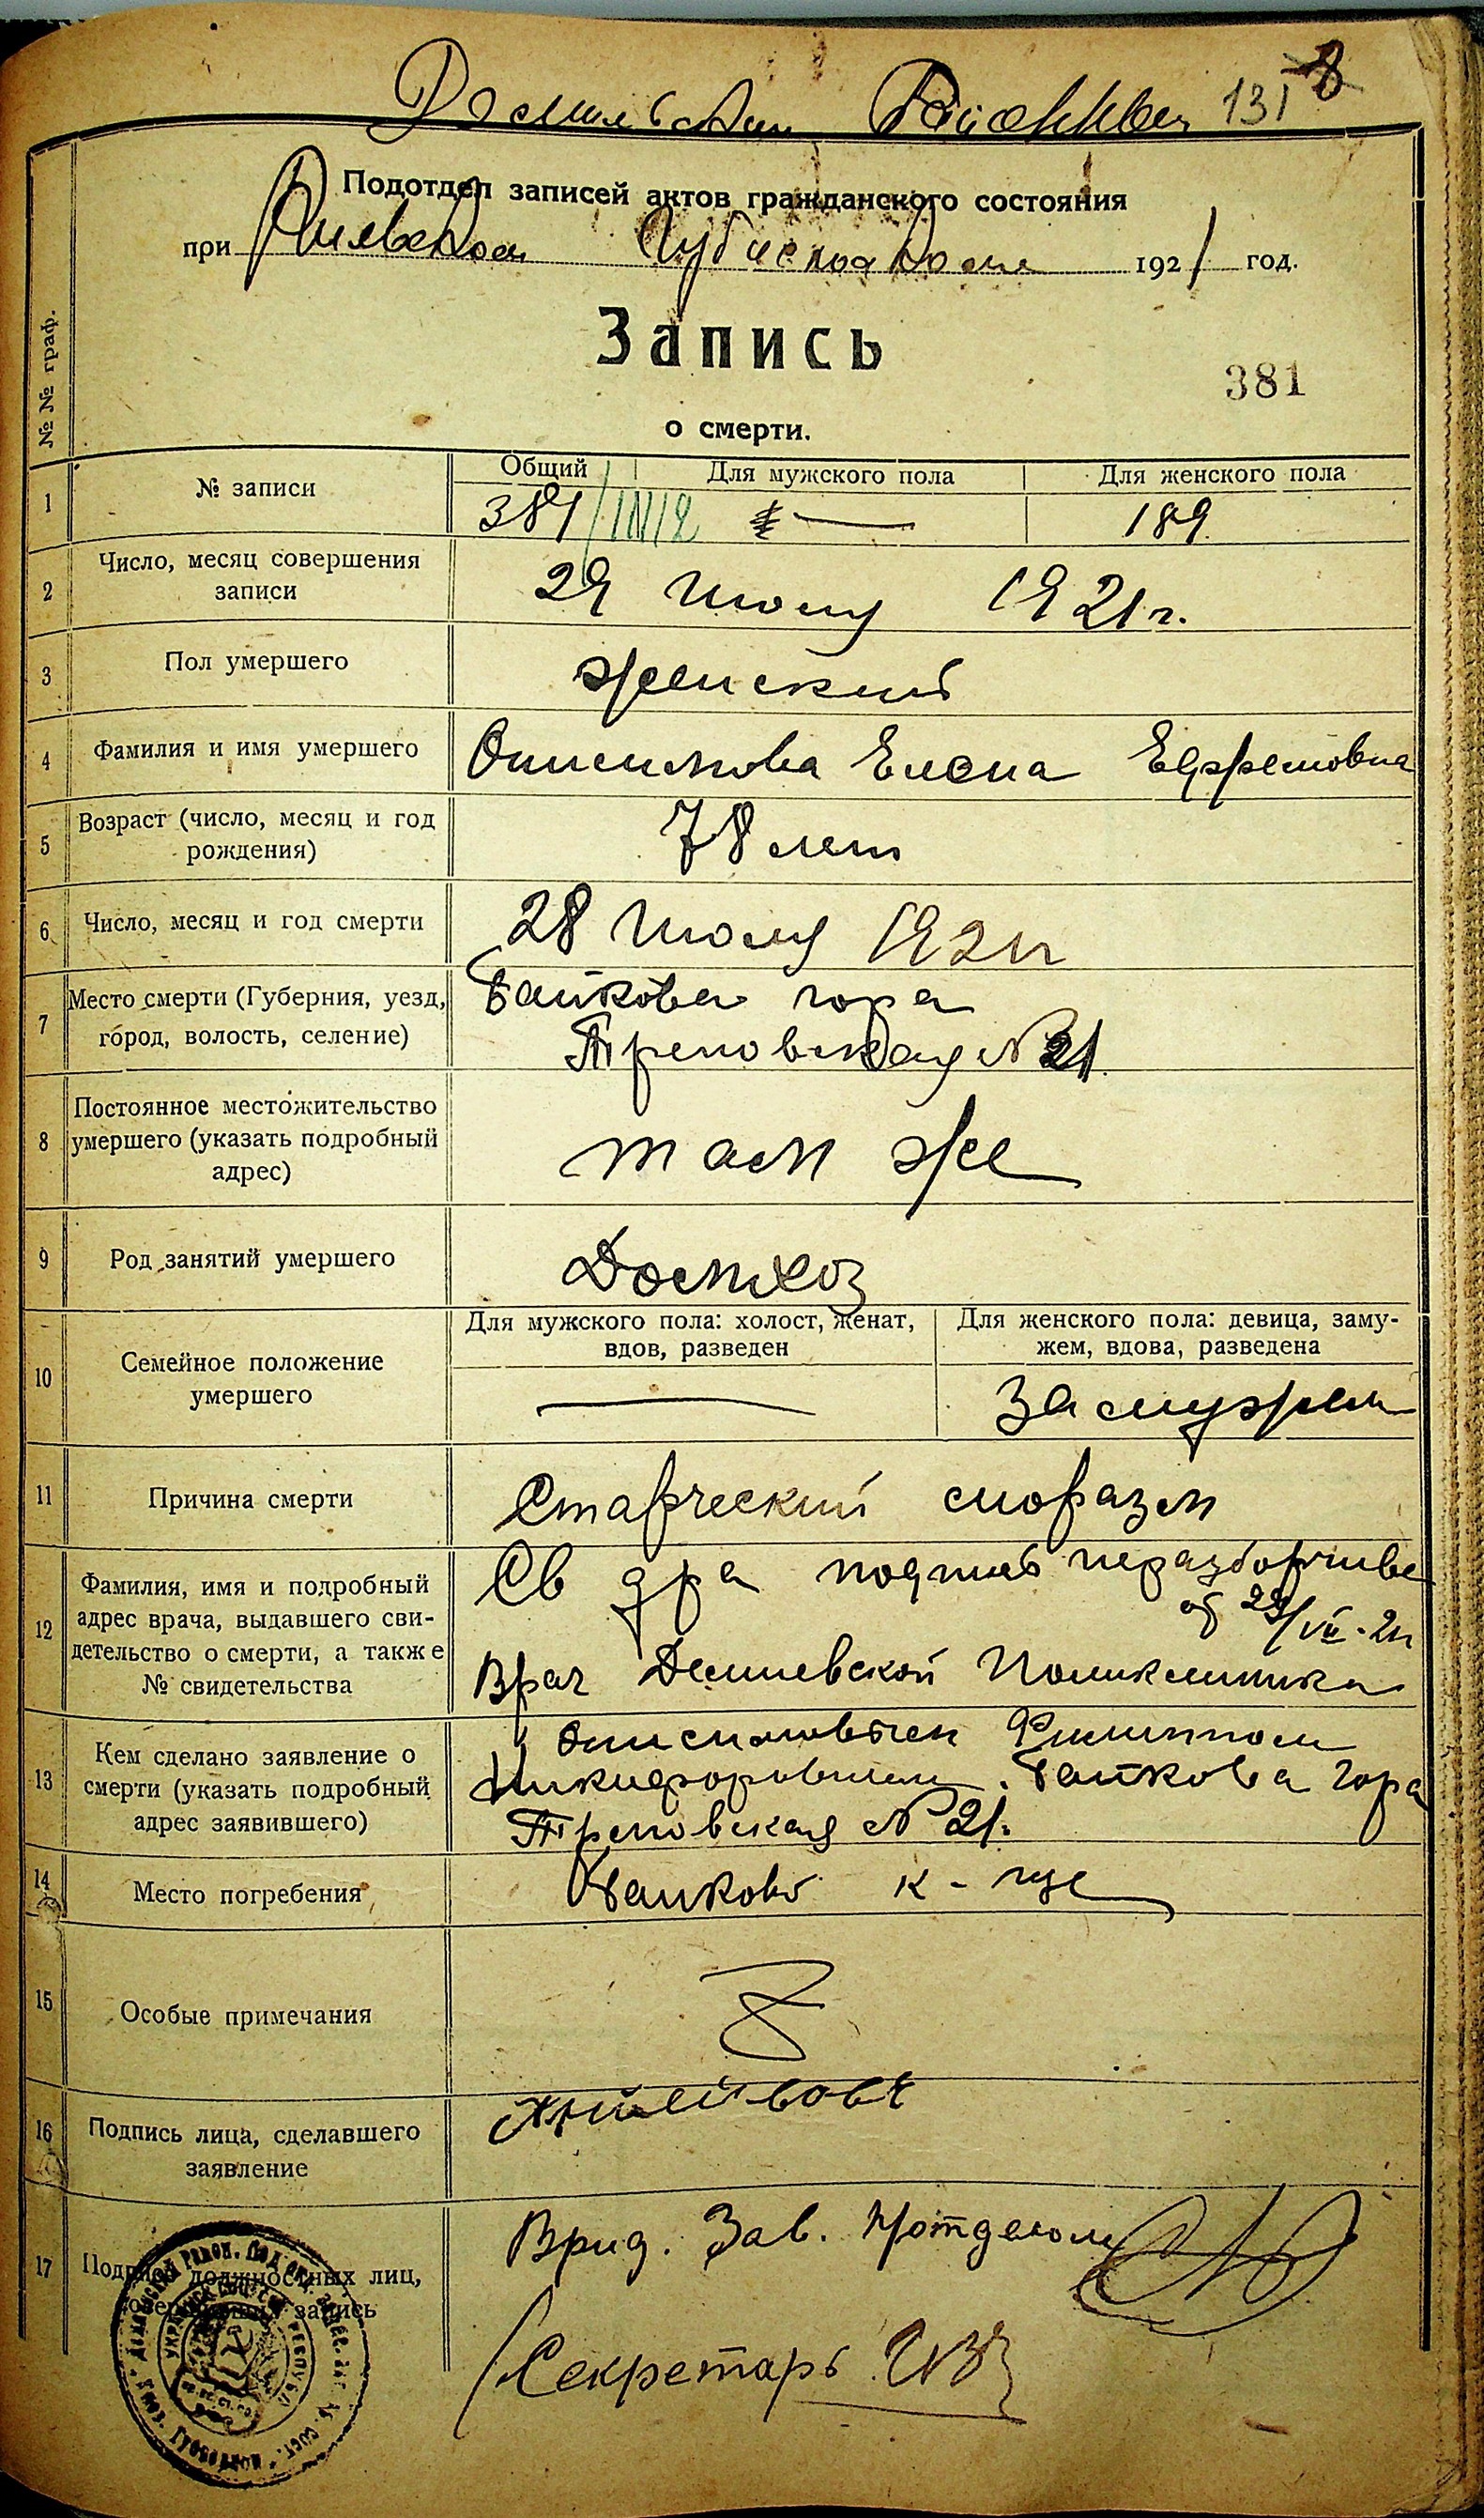 131
Подотдел записей актов гражданского состояния
при Губисполкоме 1921 год.
Запись
381
о смерти.
№№ граф.
1 № записи
Общий Для мужского пола Для женского пола
381 — 189
2 Число, месяц совершения записи
29 Июля 1921 г.
3 Пол умершего
женский
4 Фамилия и имя умершего
Елена Ефремовна
5 Возраст (число, месяц и год рождения)
78 лет
6 Число, месяц и год смерти
28 Июля 1921 г
7 Место смерти (Губерния, уезд, город, волость, селение)
Байкова гора
№ 21
8 Постоянное местожительство умершего (указать подробный адрес)
там же
9 Род занятий умершего
Домхоз
10 Семейное положение умершего
Для мужского пола: холост, женат, вдов, разведен
Для женского пола: девица, замужем, вдова, разведена
— замужем
11 Причина смерти
Старческий моразм
12 Фамилия, имя и подробный адрес врача, выдавшего свидетельство о смерти, а также № свидетельства
Св д-ра подпись неразборчива
Врач Демиевской Поликлиники
13 Кем сделано заявление о смерти (указать подробный адрес заявившего)
Филиппом
Никифоровичем. Байкова гора
№ 21.
14 Место погребения
Байково к-ще
15 Особые примечания
16 Подпись лица, сделавшего заявление
17 Подписи должностных лиц, совершивших запись
Врид. Зав. П/отделом
Секретарь